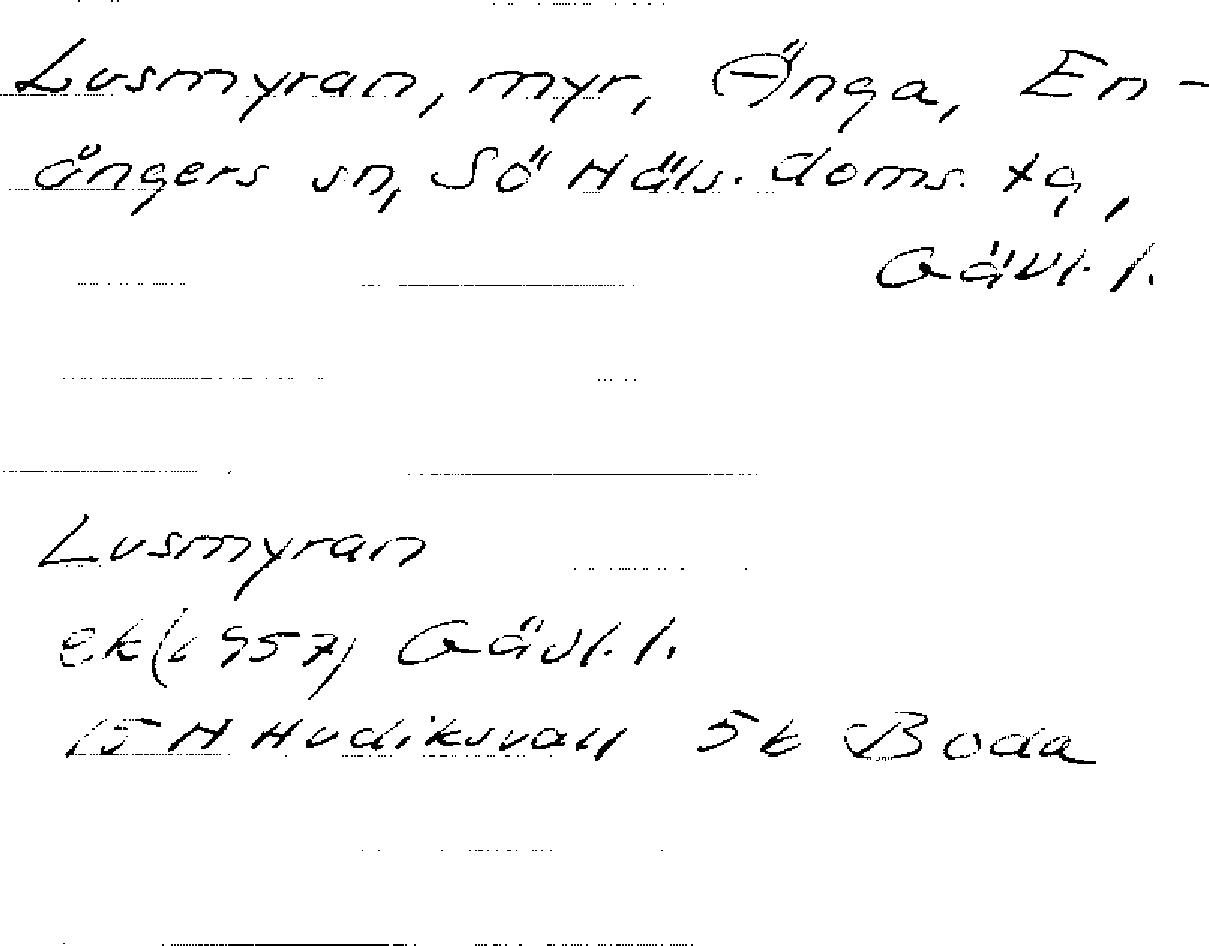 Lusmyran, myr, Änga, En-
ångers sn, Sö Häls. doms. tg,
Gävl. l.
Lusmyran
ek (1957) Gävl. l.
15 H Hudiksvall 5 b Boda